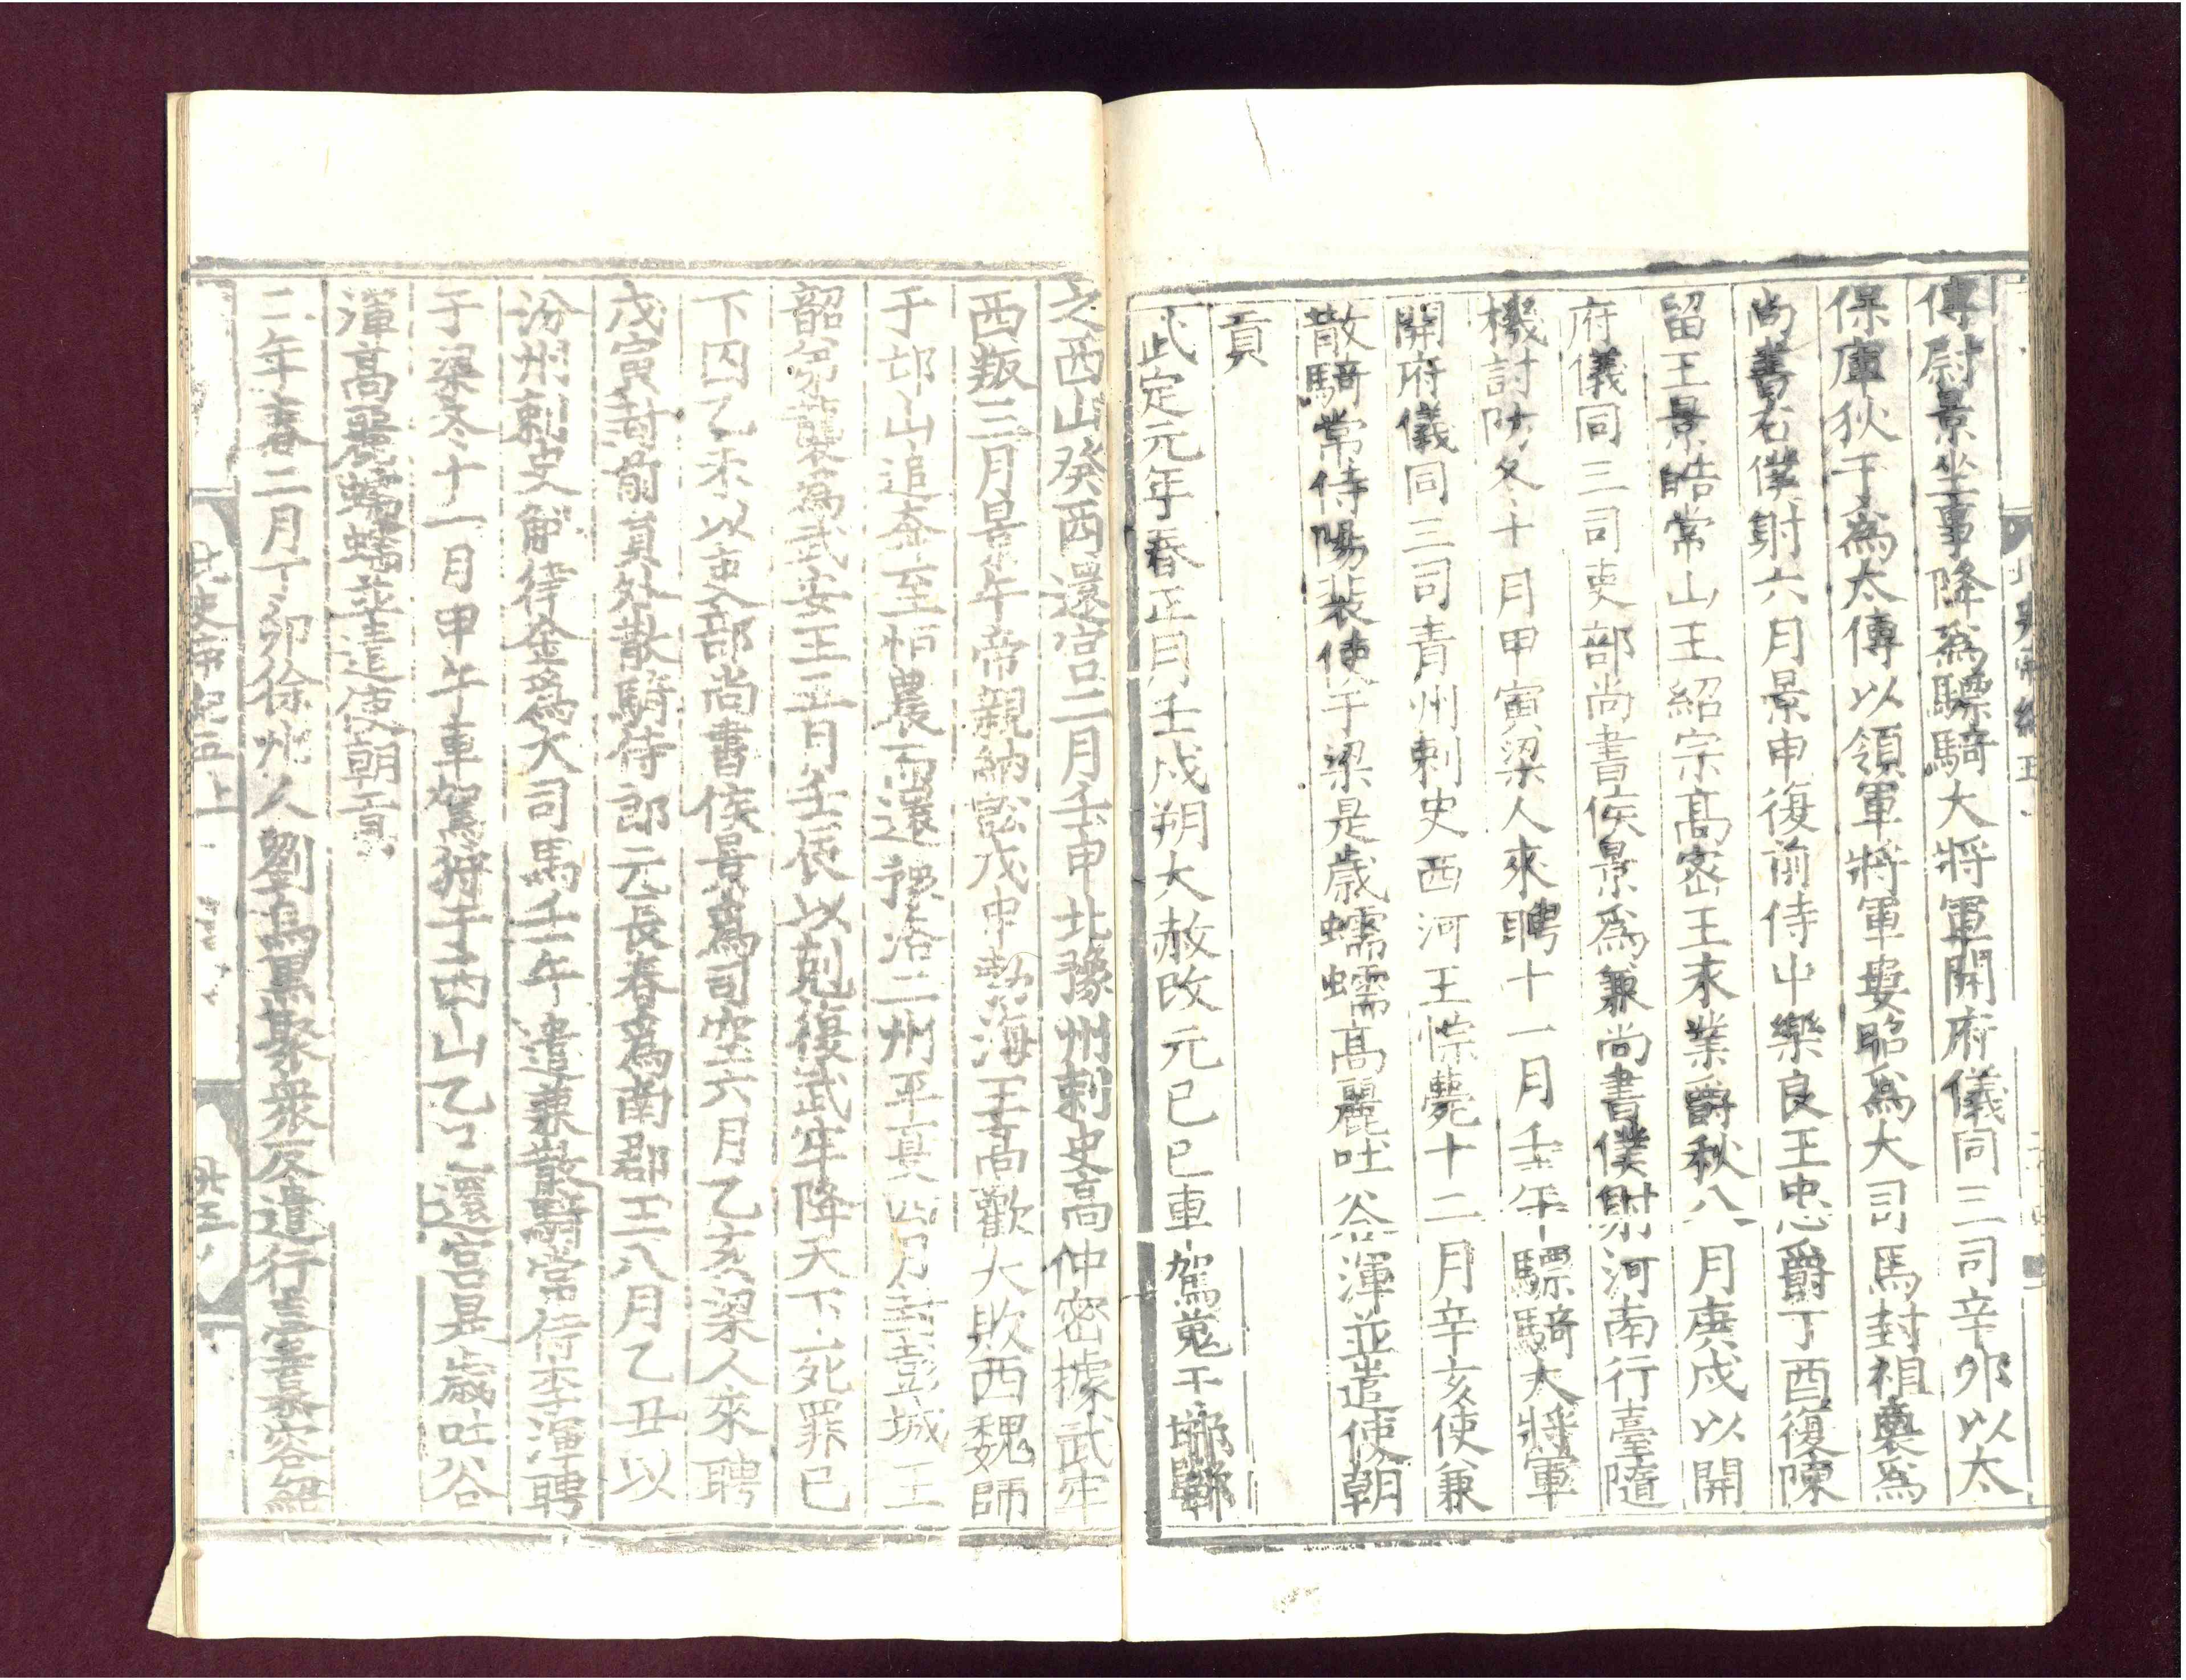 傅尉景坐事降爲驃騎大將軍開府儀同三司辛卯以太
保庫狄干爲太傅以領軍將軍婁昭爲大司馬封祖裔爲
尚書右僕射六月景申復前侍中樂良王忠爵丁酉復陳
留王景皓常山王紹宗高密王永業爵秋八月庚戌以開
府儀同三司吏部尚書侯景爲兼尚書僕射河南行臺隨
機討防冬十月甲寅梁人來聘十一月壬午驃騎大將軍
開府儀同三司青州刺史西河王悰薨十二月辛亥使兼
散騎常侍陽裴使于梁是歲蠕蠕高麗吐谷渾並遣使朝
貢
武定元年春正月壬戌朔大赦改元己巳車駕蒐于邯鄲
之西山癸酉還宮二月壬申北豫州刺史高仲密據武牢
西叛三月景午帝親納訟戊申勃海王高歡大敗西魏師
于邙山追奔至恒農而還豫洛二州平夏四月封彭城王
韶弟襲爲武安王五月壬辰以剋復武牢降天下死罪已
下囚乙未以吏部尚書侯景爲司空六月乙亥梁人來聘
戊寅封前員外散騎侍郎元長春爲南郡王八月乙丑以
汾州刺史斛律金爲大司馬壬午遣兼散騎常侍李渾聘
于梁冬十一月甲午車駕狩于西山乙巳還宮是歲吐谷
渾高麗蠕蠕並遣使朝貢
二年春二月丁卯徐州人劉烏黑聚衆反遣行臺慕容紹
北史帝紀五上